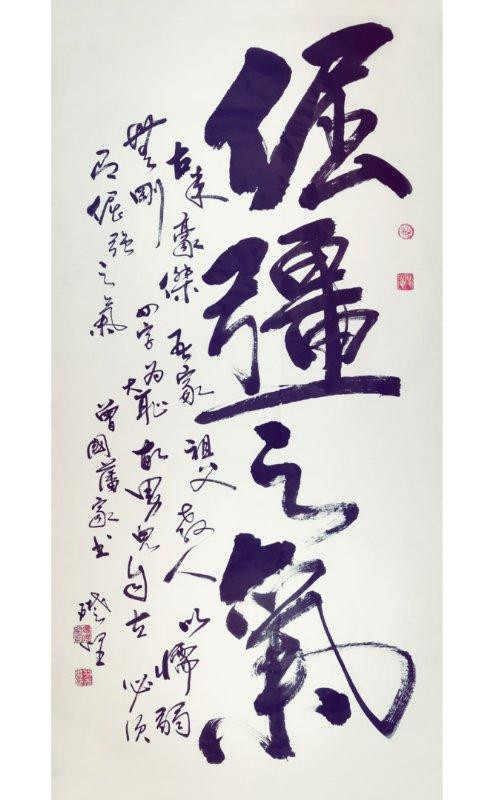 倔彊之氣
古来豪傑吾家祖父教人以懦弱
無剛四字为大恥故男兒自立必须
有倔强之氣
曾國藩家书